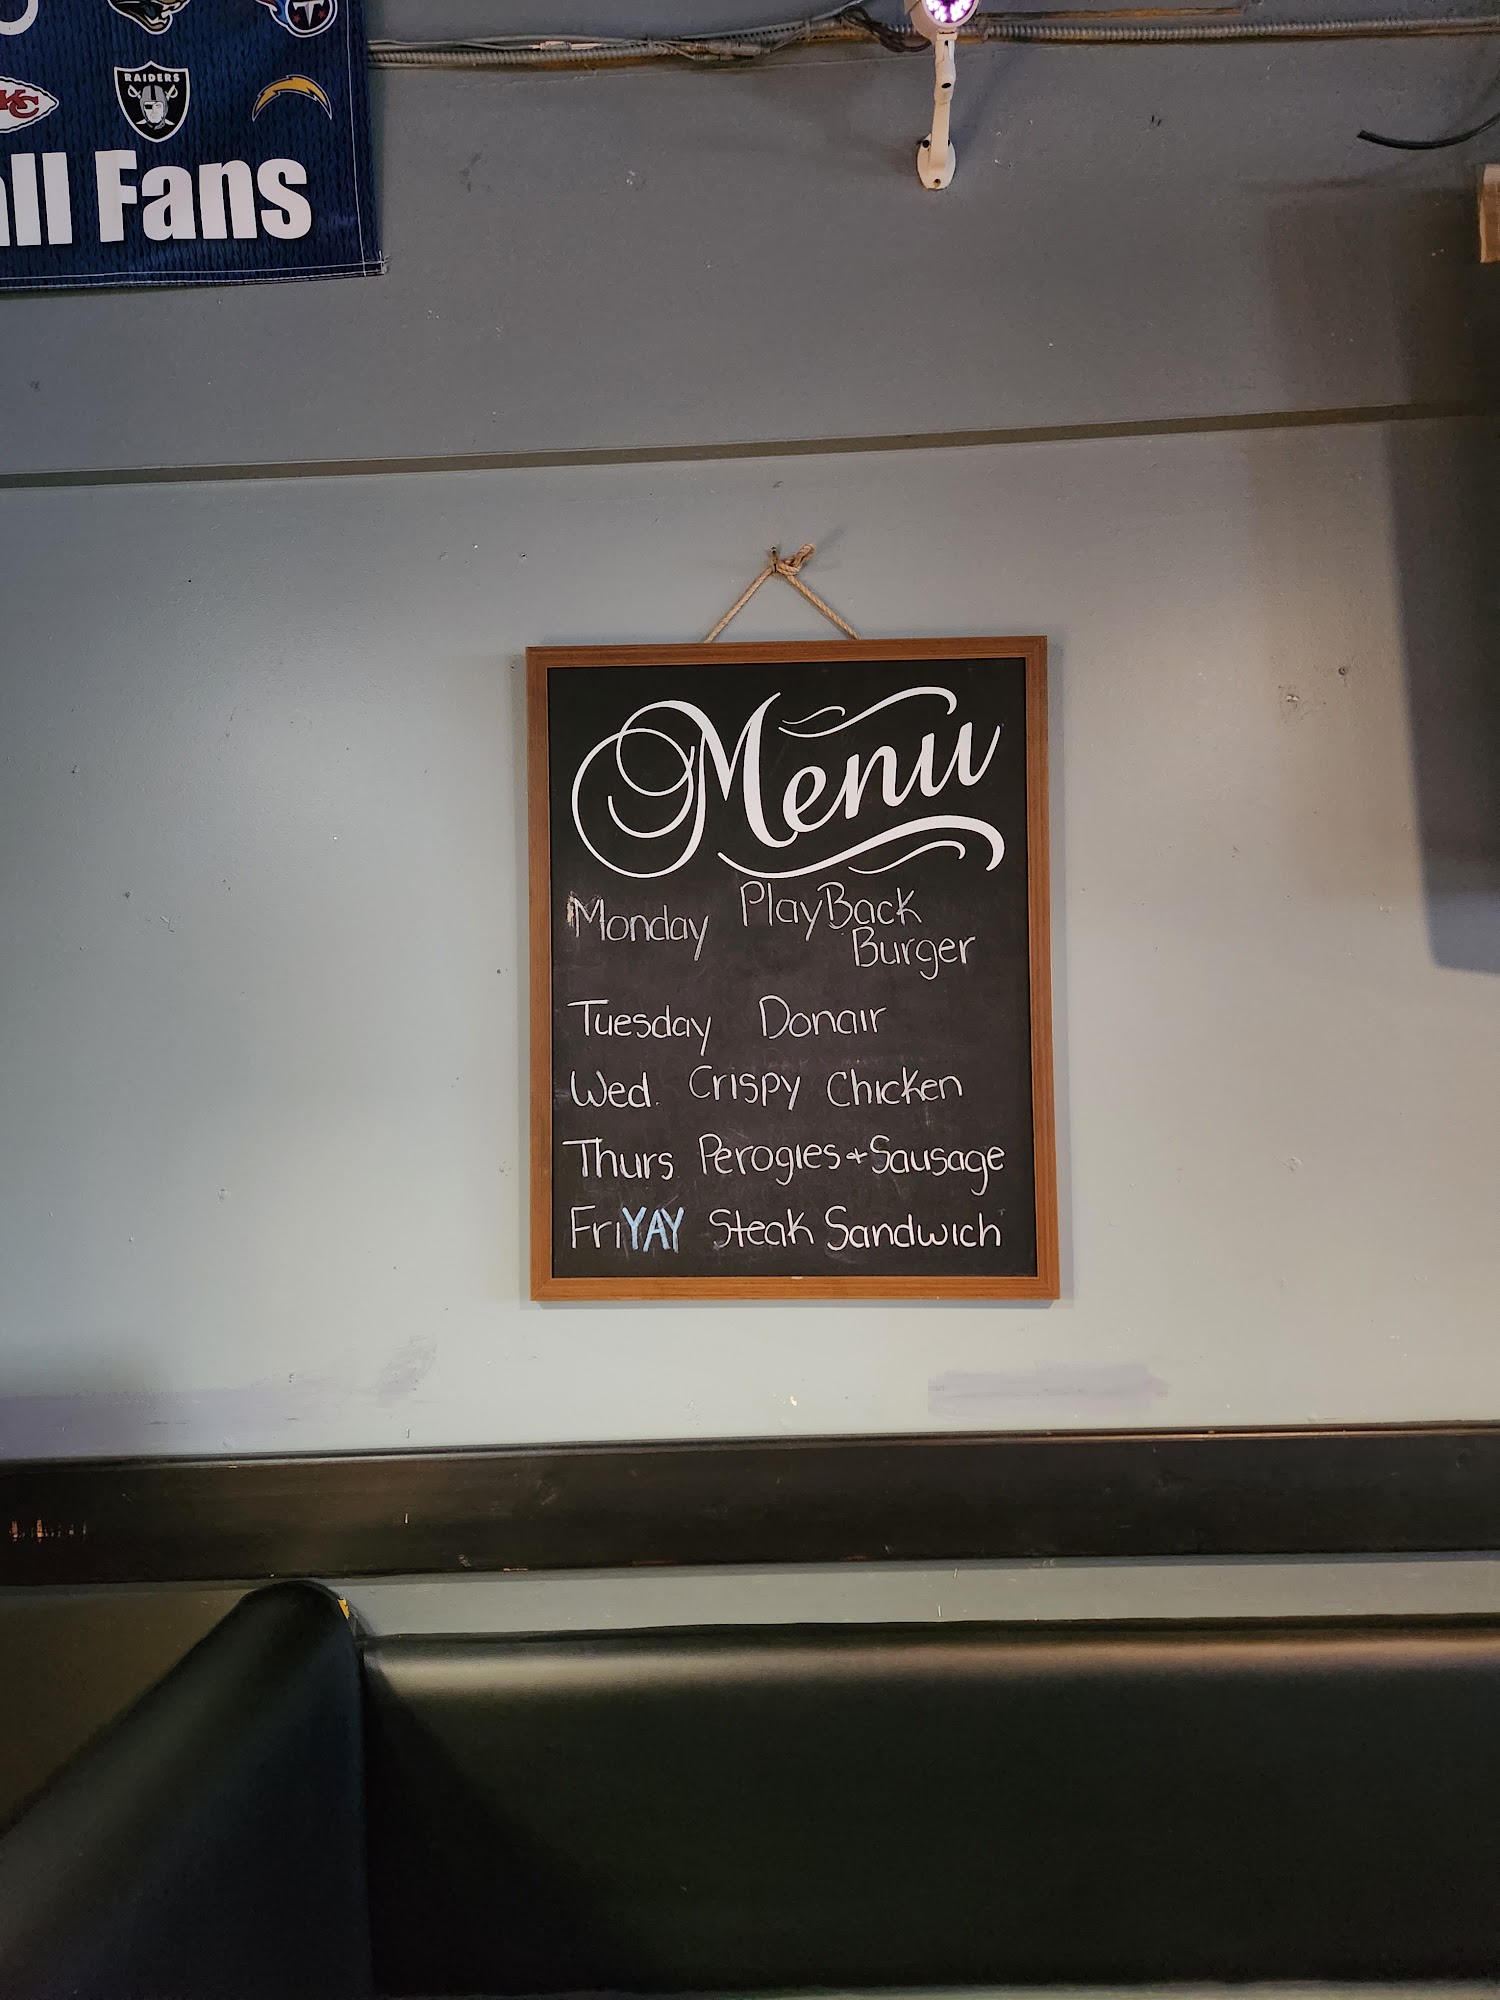 KC
RAIDERS
all Fans
Menu
Monday PlayBack
Burger
Tuesday Donair
Wed. Crispy Chicken
Thurs Perogies + Sausage
FriYAY Steak Sandwich